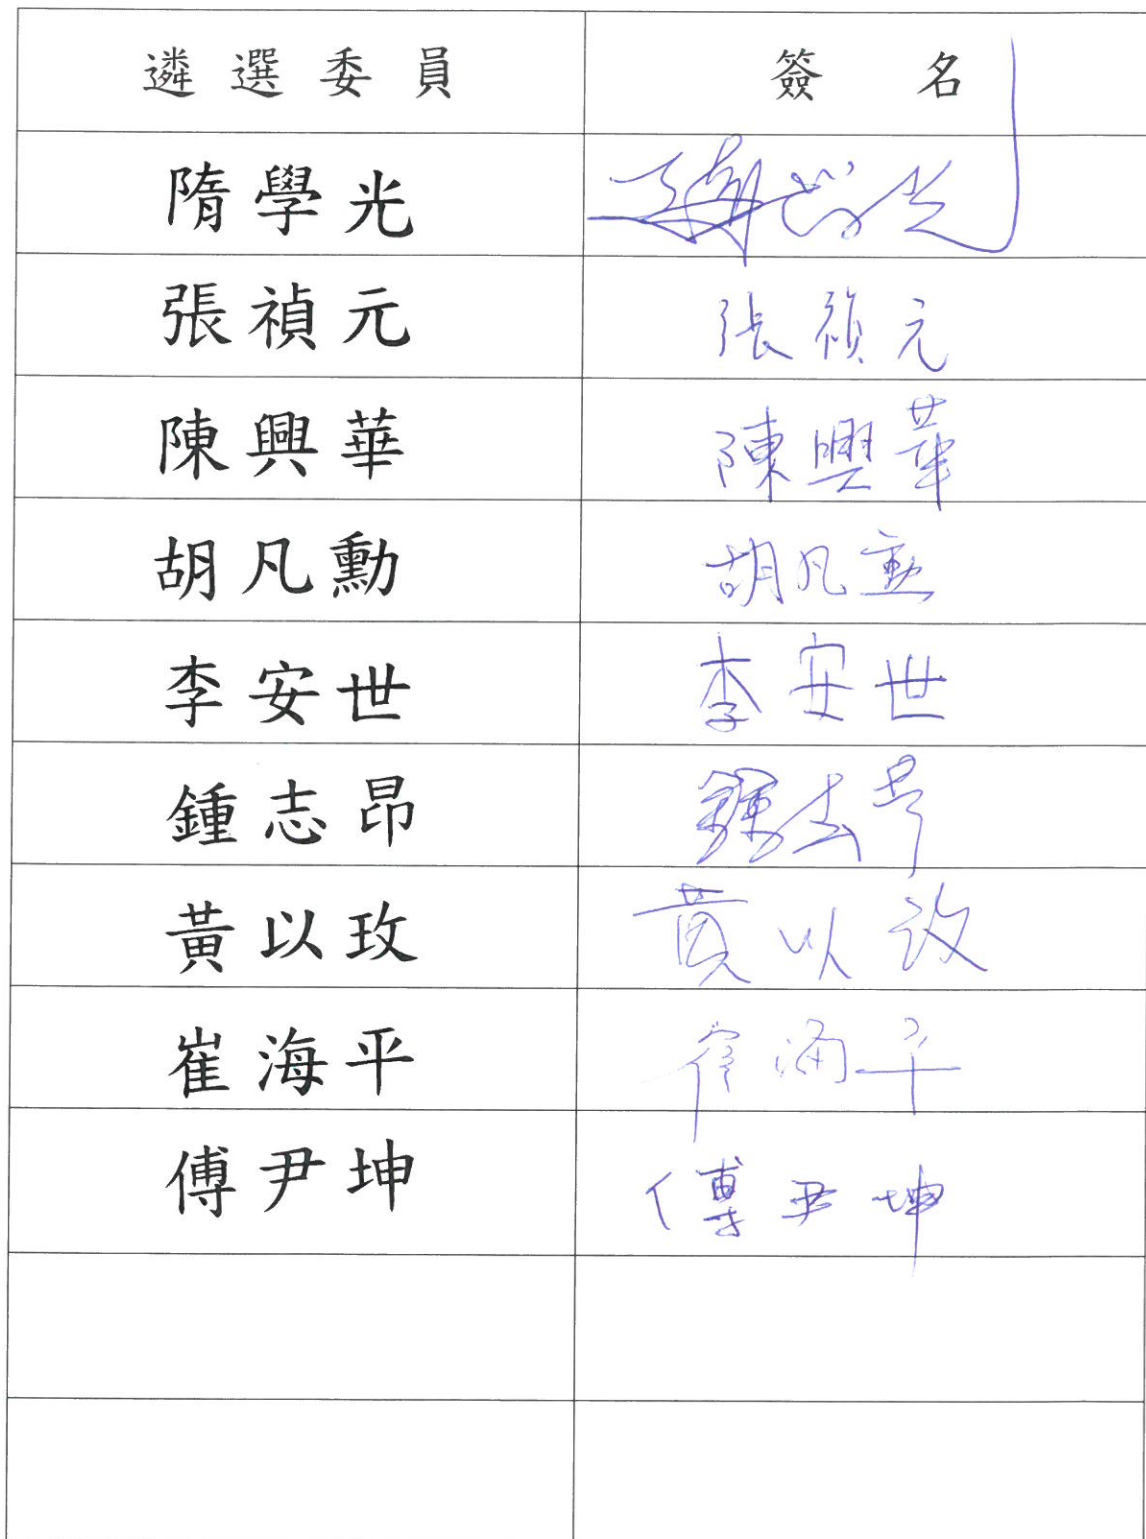 遴選委員 簽名
隋學光 隋學光
張禎元 張禎元
陳興華 陳興華
胡凡勳 胡凡勳
李安世 李安世
鍾志昂 鍾志昂
黃以玫 黃以玫
崔海平 崔海平
傅尹坤 傅尹坤